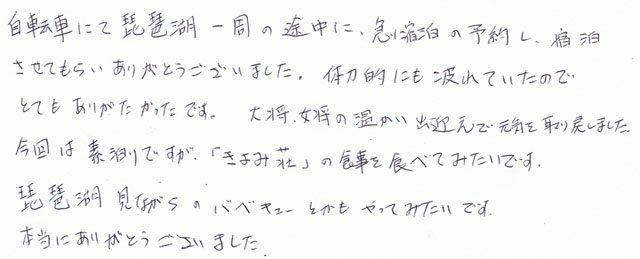 自転車にて琵琶湖一周の途中に、急宿泊の予約し、宿泊
させてもらいありがとうございました。体力的にも疲れていたので
とてもありがたかったです。大将、女将の温かい出迎えで元気を取り戻しました。
今回は素泊りですが、「きよみ荘」の食事を食べてみたいです。
琵琶湖見ながらのバベキューとかもやってみたいです。
本当にありがとうございました。